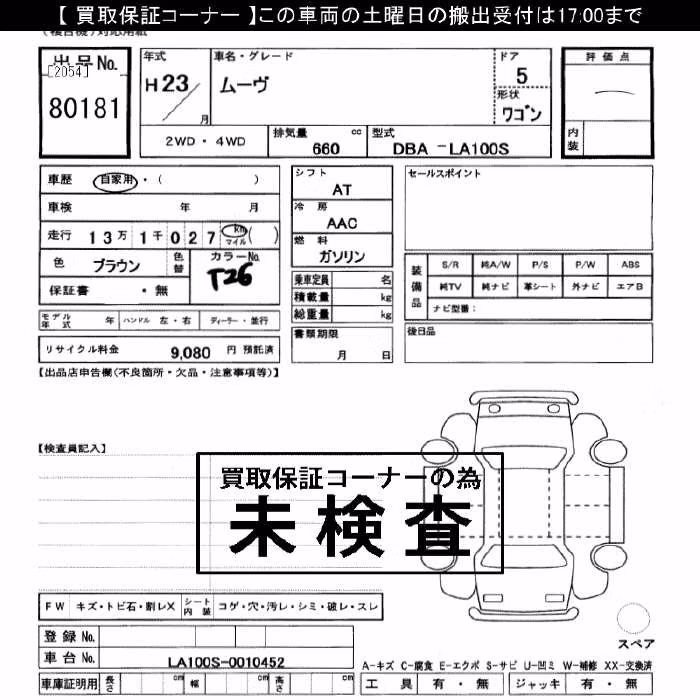 【 買取保証コーナー 】この車両の土曜日の搬出受付は17:00まで
出品No.
[2054]
80181
年式
H23/月
車名・グレード
ムーヴ
ドア
5
形状
ワゴン
評価点
内装
2WD・4WD
排気量 660 cc
型式 DBA -LA100S
車歴 自家用・( )
車検 年 月
走行 13万1千027 km マイル ( )
色 ブラウン
色替
カラーNo.
T26
保証書 ・無
シフト
AT
冷房
AAC
燃料
ガソリン
乗車定員 名
積載量 kg
総重量 kg
セールスポイント
装備品
S/R 純A/W P/S P/W ABS
純TV 純ナビ 革シート 外ナビ エアB
ナビ型番:
モデル年式 年 ハンドル 左・右 ディーラー・並行
書類期限
月 日
後日品
リサイクル料金 9,080 円 預託済
【出品店申告欄(不良箇所・欠品・注意事項等)】
【検査員記入】
買取保証コーナーの為
未検査
FW キズ・トビ石・割レX シート内装 コゲ・穴・汚レ・シミ・破レ・スレ
登録No.
車台No. LA100S-0010452
スペア
A-キズ C-腐食 E-エクボ S-サビ U-凹ミ W-補修 XX-交換済
車庫証明用 長さ cm 幅 cm 高さ cm
工具 有・無 ジャッキ 有・無